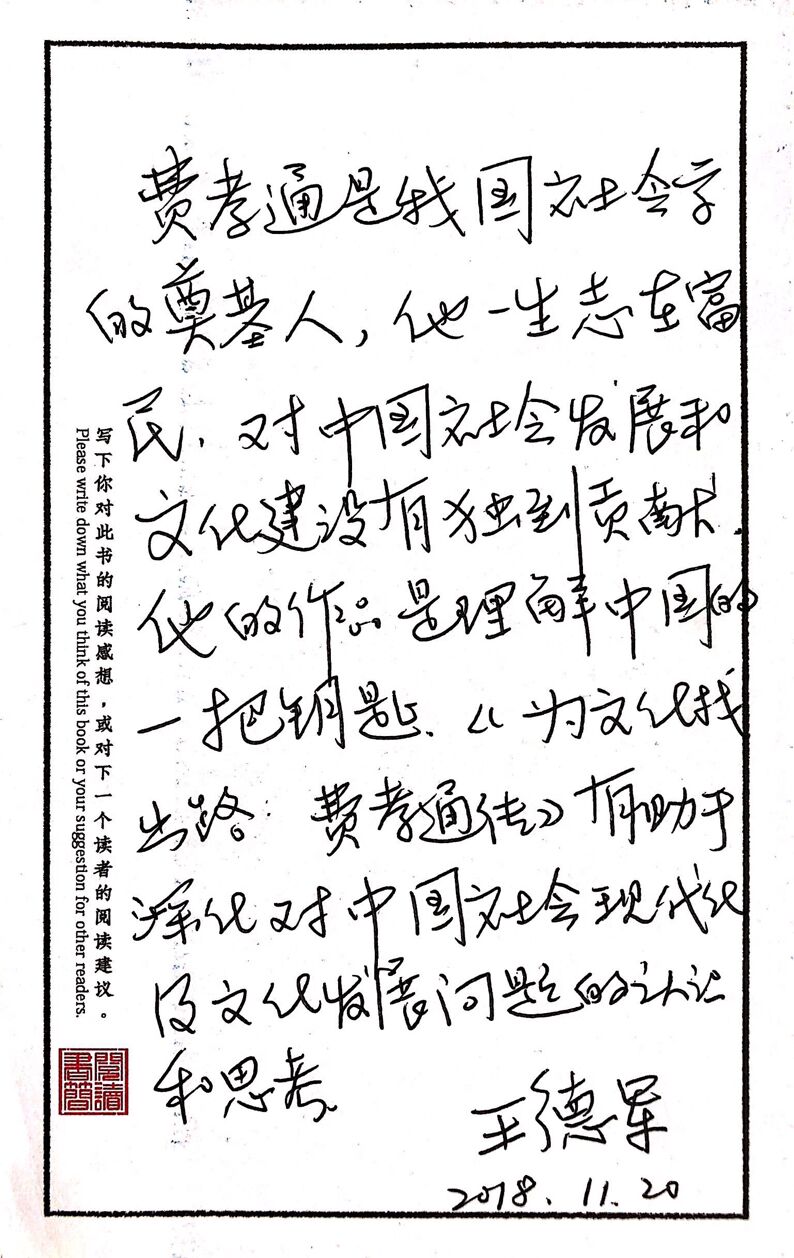 费孝通是我国社会学
的奠基人，他一生志在富
民，对中国社会发展和
文化建设有独到贡献。
他的作品是理解中国的
一把钥匙。《为文化找
出路：费孝通传》有助于
深化对中国社会现代化
及文化发展问题的认识
和思考。
王德军
2018.11.20
写下你对此书的阅读感想，或对下一个读者的阅读建议。
Please write down what you think of this book or your suggestion for other readers.
閱讀書簡